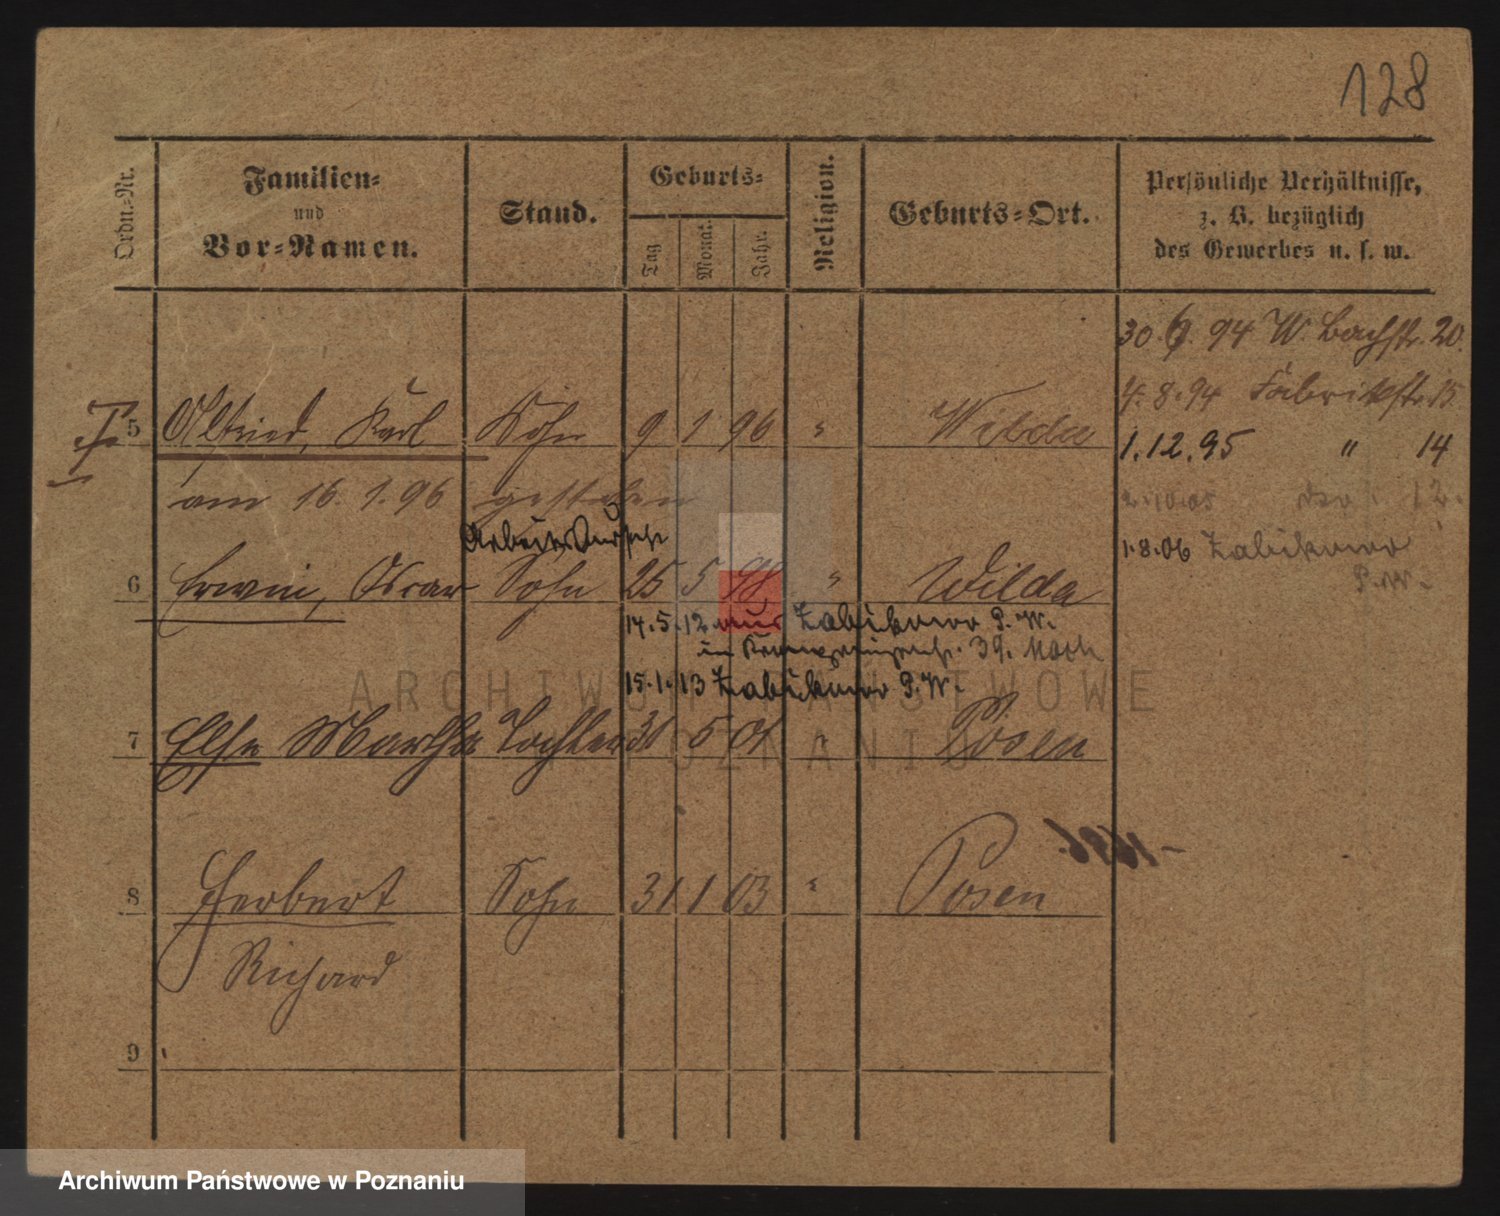 128
Ordn.-Nr.
Familien-
und
Vor-Namen.
Stand.
Geburts-
Tag
Monat.
Jahr.
Religion.
Geburts-Ort.
Persönliche Verhältnisse,
z. B. bezüglich
des Gewerbes u. s. w.
30. 94 W. Bachstr. 20.
4.8.94 Fabrikstr. 15
5 Alfried, Karl Sohn 9 1 96 " Wilda
1.12.95 " 14
am 16. 1. 96 gestorben
2.10.05 12.
Arbeitsbursche
1.8.06 Zabikowo
P.W.
6 Erwin, Oscar Sohn 25 5 98 " Wilda
14.5.12 aus Zabikowo P.W.
in 39.
15.1.13 Zabikowo P.W.
7 Else Martha Tochter 31 5 01 " Posen
8 Herbert Sohn 31 1 03 " Posen
Richard
9
ARCHIWUM PAŃSTWOWE
W POZNANIU
Archiwum Państwowe w Poznaniu